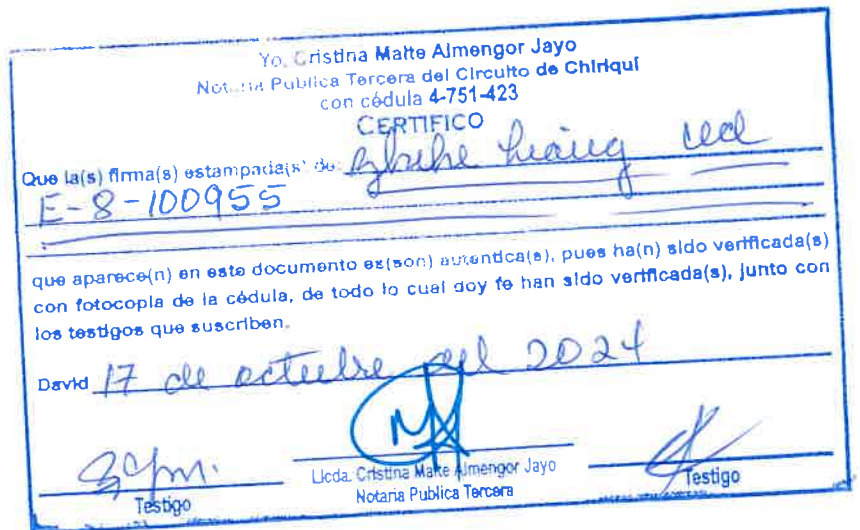 Yo, Cristina Maite Almengor Jayo
Notaria Publica Tercera del Circuito de Chiriquí
con cédula 4-751-423
CERTIFICO
Que la(s) firma(s) estampada(s) de: Huang ced
E-8-100955
que aparece(n) en este documento es(son) autentica(s), pues ha(n) sido verificada(s)
con fotocopia de la cédula, de todo lo cual doy fe han sido verificada(s), junto con
los testigos que suscriben.
David 17 de octubre del 2024
Testigo
Licda. Cristina Maite Almengor Jayo
Notaria Publica Tercera
Testigo